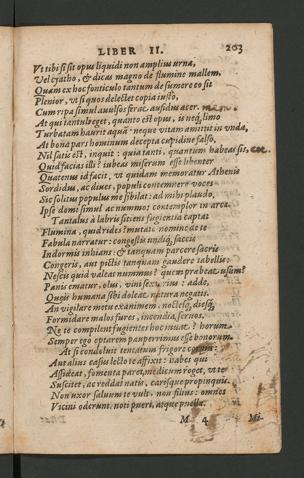 LIBER II. 203
Vt tibi si sit opus liquidi non amplius urna,
Vel cyatho, & dicas magno de flumine mallem,
Quàm ex hoc fonticulo tantum de sumere eo sit
Plenior, vt si quos delectet copia iusto,
Cum ripa simul auulsos ferat aufidus acer.
At qui tantuli eget, quanto est opus, is neq; limo
Turbatam haurit aquã neque vitam amittit in vnda,
At bona pars hominum decepta cupidine falso,
Nil satis est, inquit: quia tanti, quantum habeas sis,
Quid facias illi? iubeas miserum esse libenter
Quatenus id facit, vt quidam memoratur Athenis
Sordidus, ac diues, populi contemnere voces
Sic solitus populus me sibilat: ad mihi plaudo,
Ipse domi simul ac nummos contemplor in arca.
Tantalus à labris sitiens fugientia captat
Flumina, quid rides? mutato nomine de te
Fabula narratur: congestis undiq; saccis
Indormis inhians: & tanquam parcere sacris
Congeris, aut pictis tanquam gaudere tabellis:
Nescis quid valeat nummus? quem præbeat usum?
Panis ematur, olus, vini sextarius: adde,
Queis humana sibi doleat natura negatis.
An vigilare metu exanimem, noctesq; diesq;
Formidare malos fures, incendia, seruos,
Ne te compilent fugientes hoc iuuat? horum
Semper ego optarem pauperrimus esse bonorum.
At si condoluit tentatum frigore corpus:
Aut alius casus lecto te affixit: habes qui
Assideat, fomenta paret, medicum roget, vt te
Suscitet, ac reddat natis, carisque propinquis.
Non uxor saluum te vult, non filius: omnes
Vicini oderunt, noti pueri, atque puellæ.
M 4 Mi-